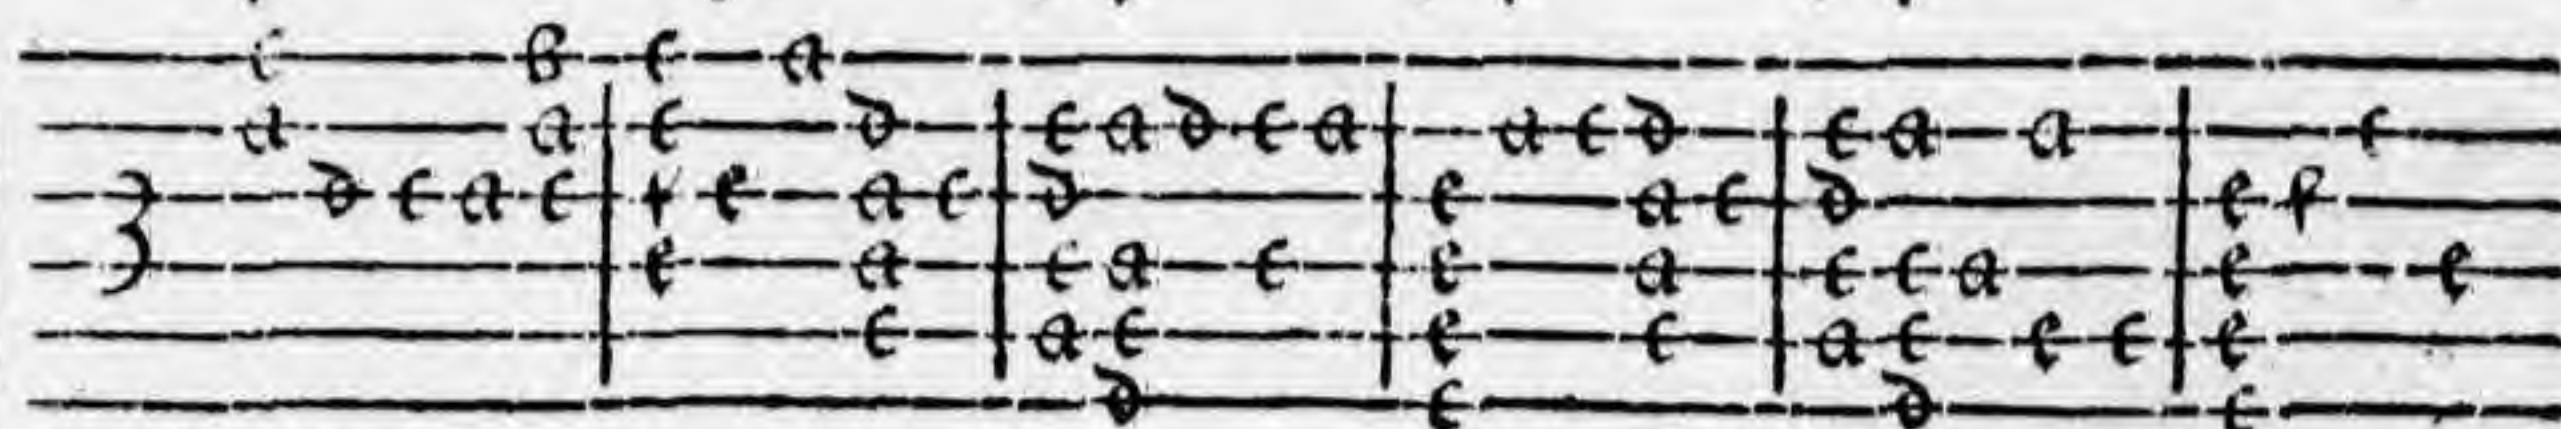 c b c a
a a c d c a d c a a c d c a a c
3 d c a c r e a c d e a c d e f
e a c a c e a c c a e e
c a c e c a c e c e
d c d c